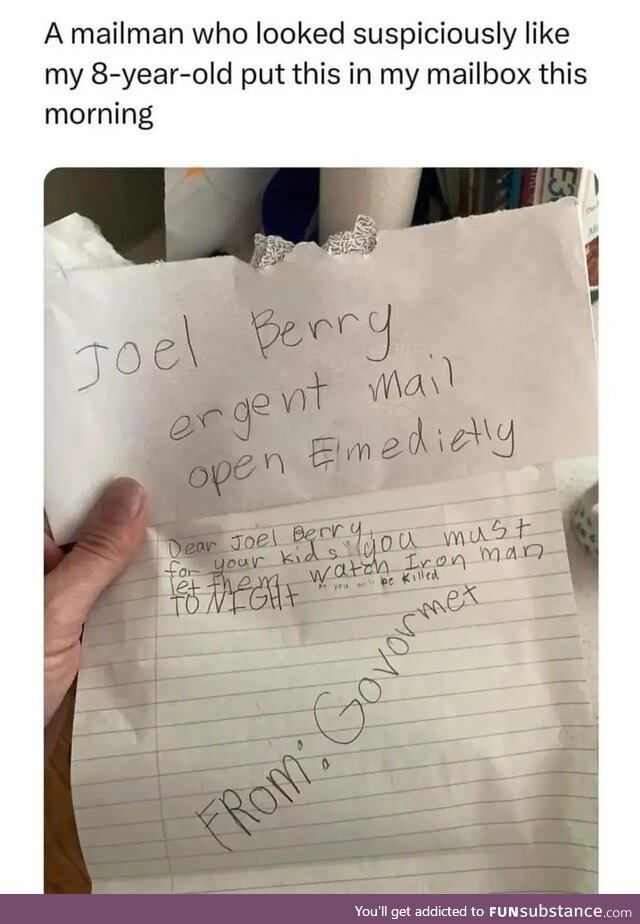 A mailman who looked suspiciously like
my 8-year-old put this in my mailbox this
morning
Joel Berry
ergent mail
open Emedietly
Dear Joel Berry
for your kids you must
let them watch Iron man
or you will be killed
TONIGHt
FRom: Govormet
You'll get addicted to FUNsubstance.com